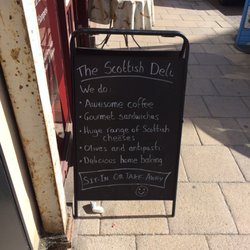 The Scottish Deli
We do...
• Awesome coffee
• Gourmet sandwiches
• Huge range of Scottish
cheeses
• Olives and antipasti
• Delicious home baking
SIT-IN OR TAKE AWAY